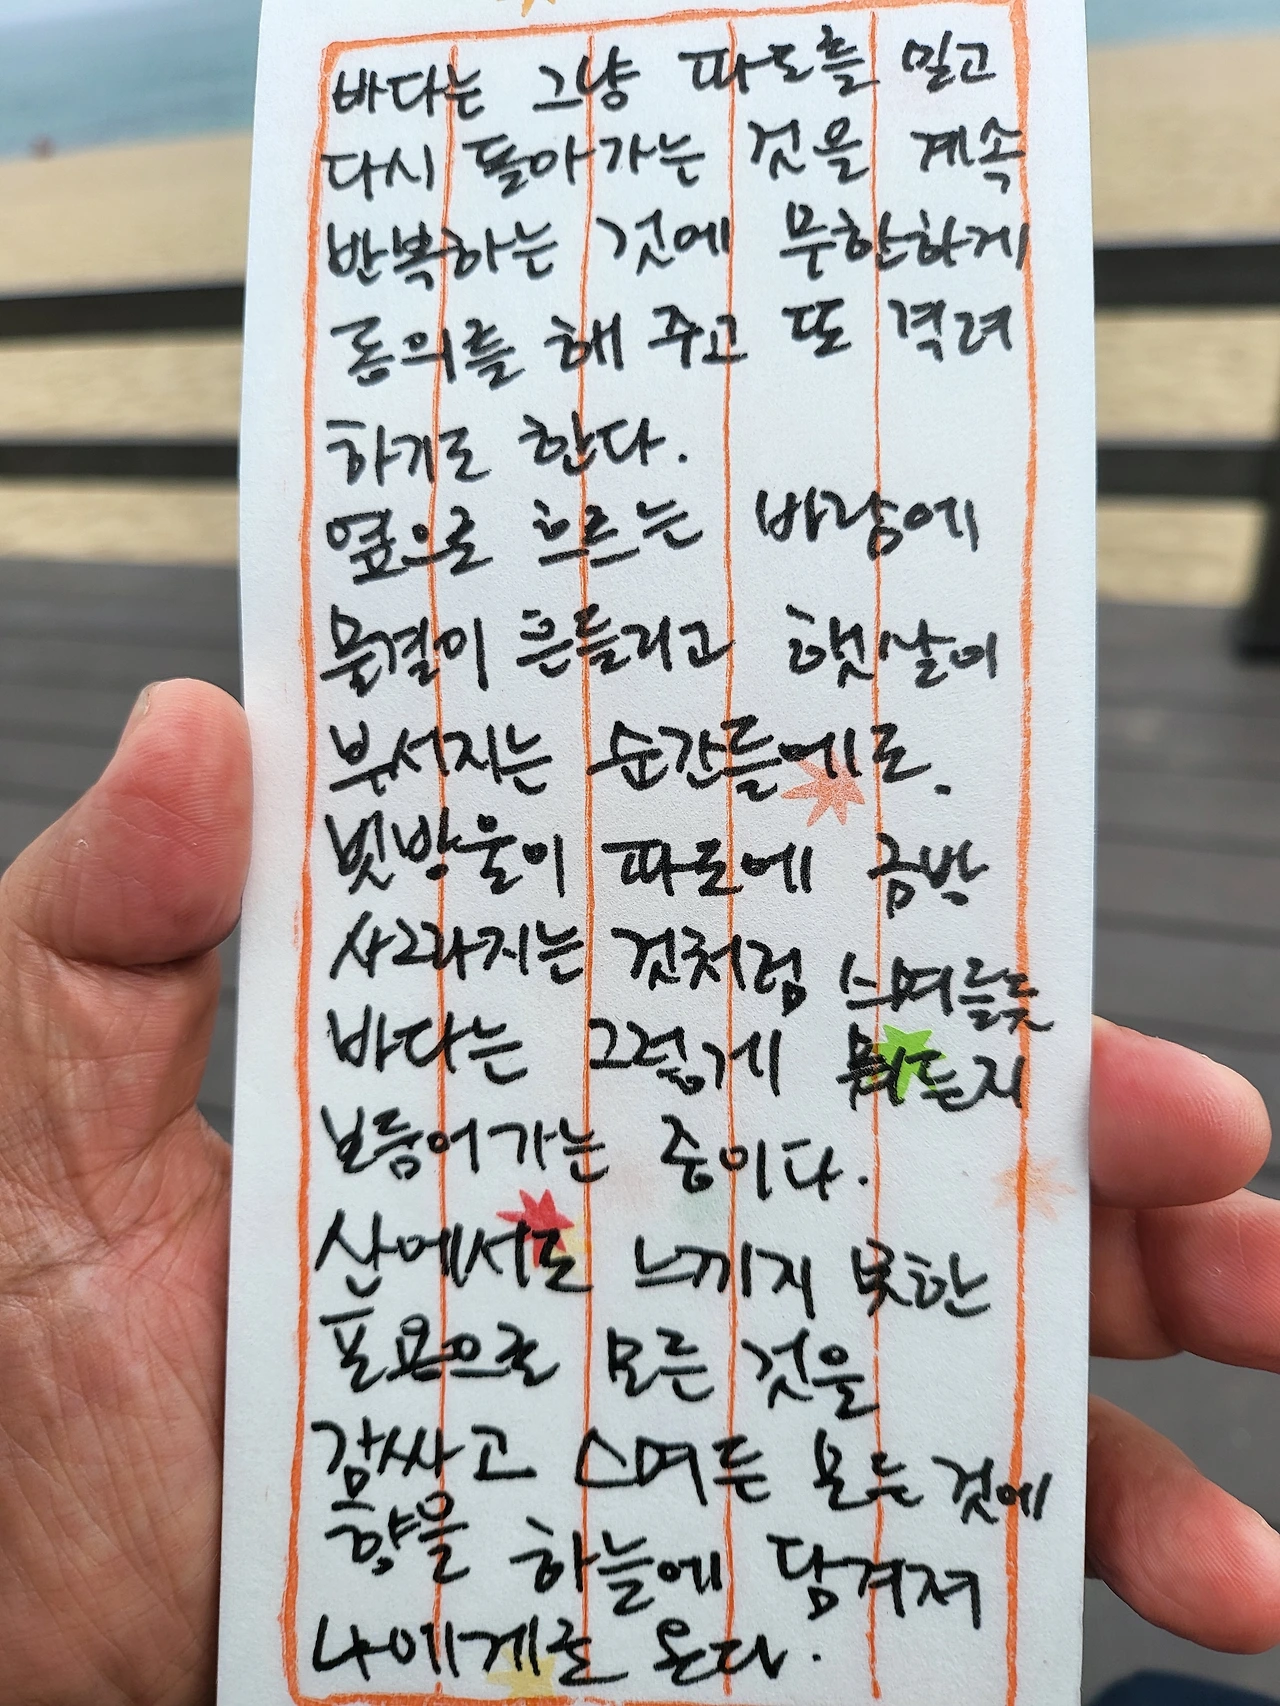 바다는 그냥 파도를 밀고
다시 돌아가는 것을 계속
반복하는 것에 무한하게
동의를 해 주고 또 격려
하기로 한다.
옆으로 흐르는 바람에
물결이 흔들리고 햇살이
부서지는 순간들에로.
빗방울이 파도에 금방
사그라지는 것처럼 스며들듯
바다는 그렇게 뭐든지
보듬어가는 중이다.
산에서도 느끼지 못한
포용으로 모든 것을
감싸고 스며든 모든 것에
향을 하늘에 담겨져
나에게로 온다.